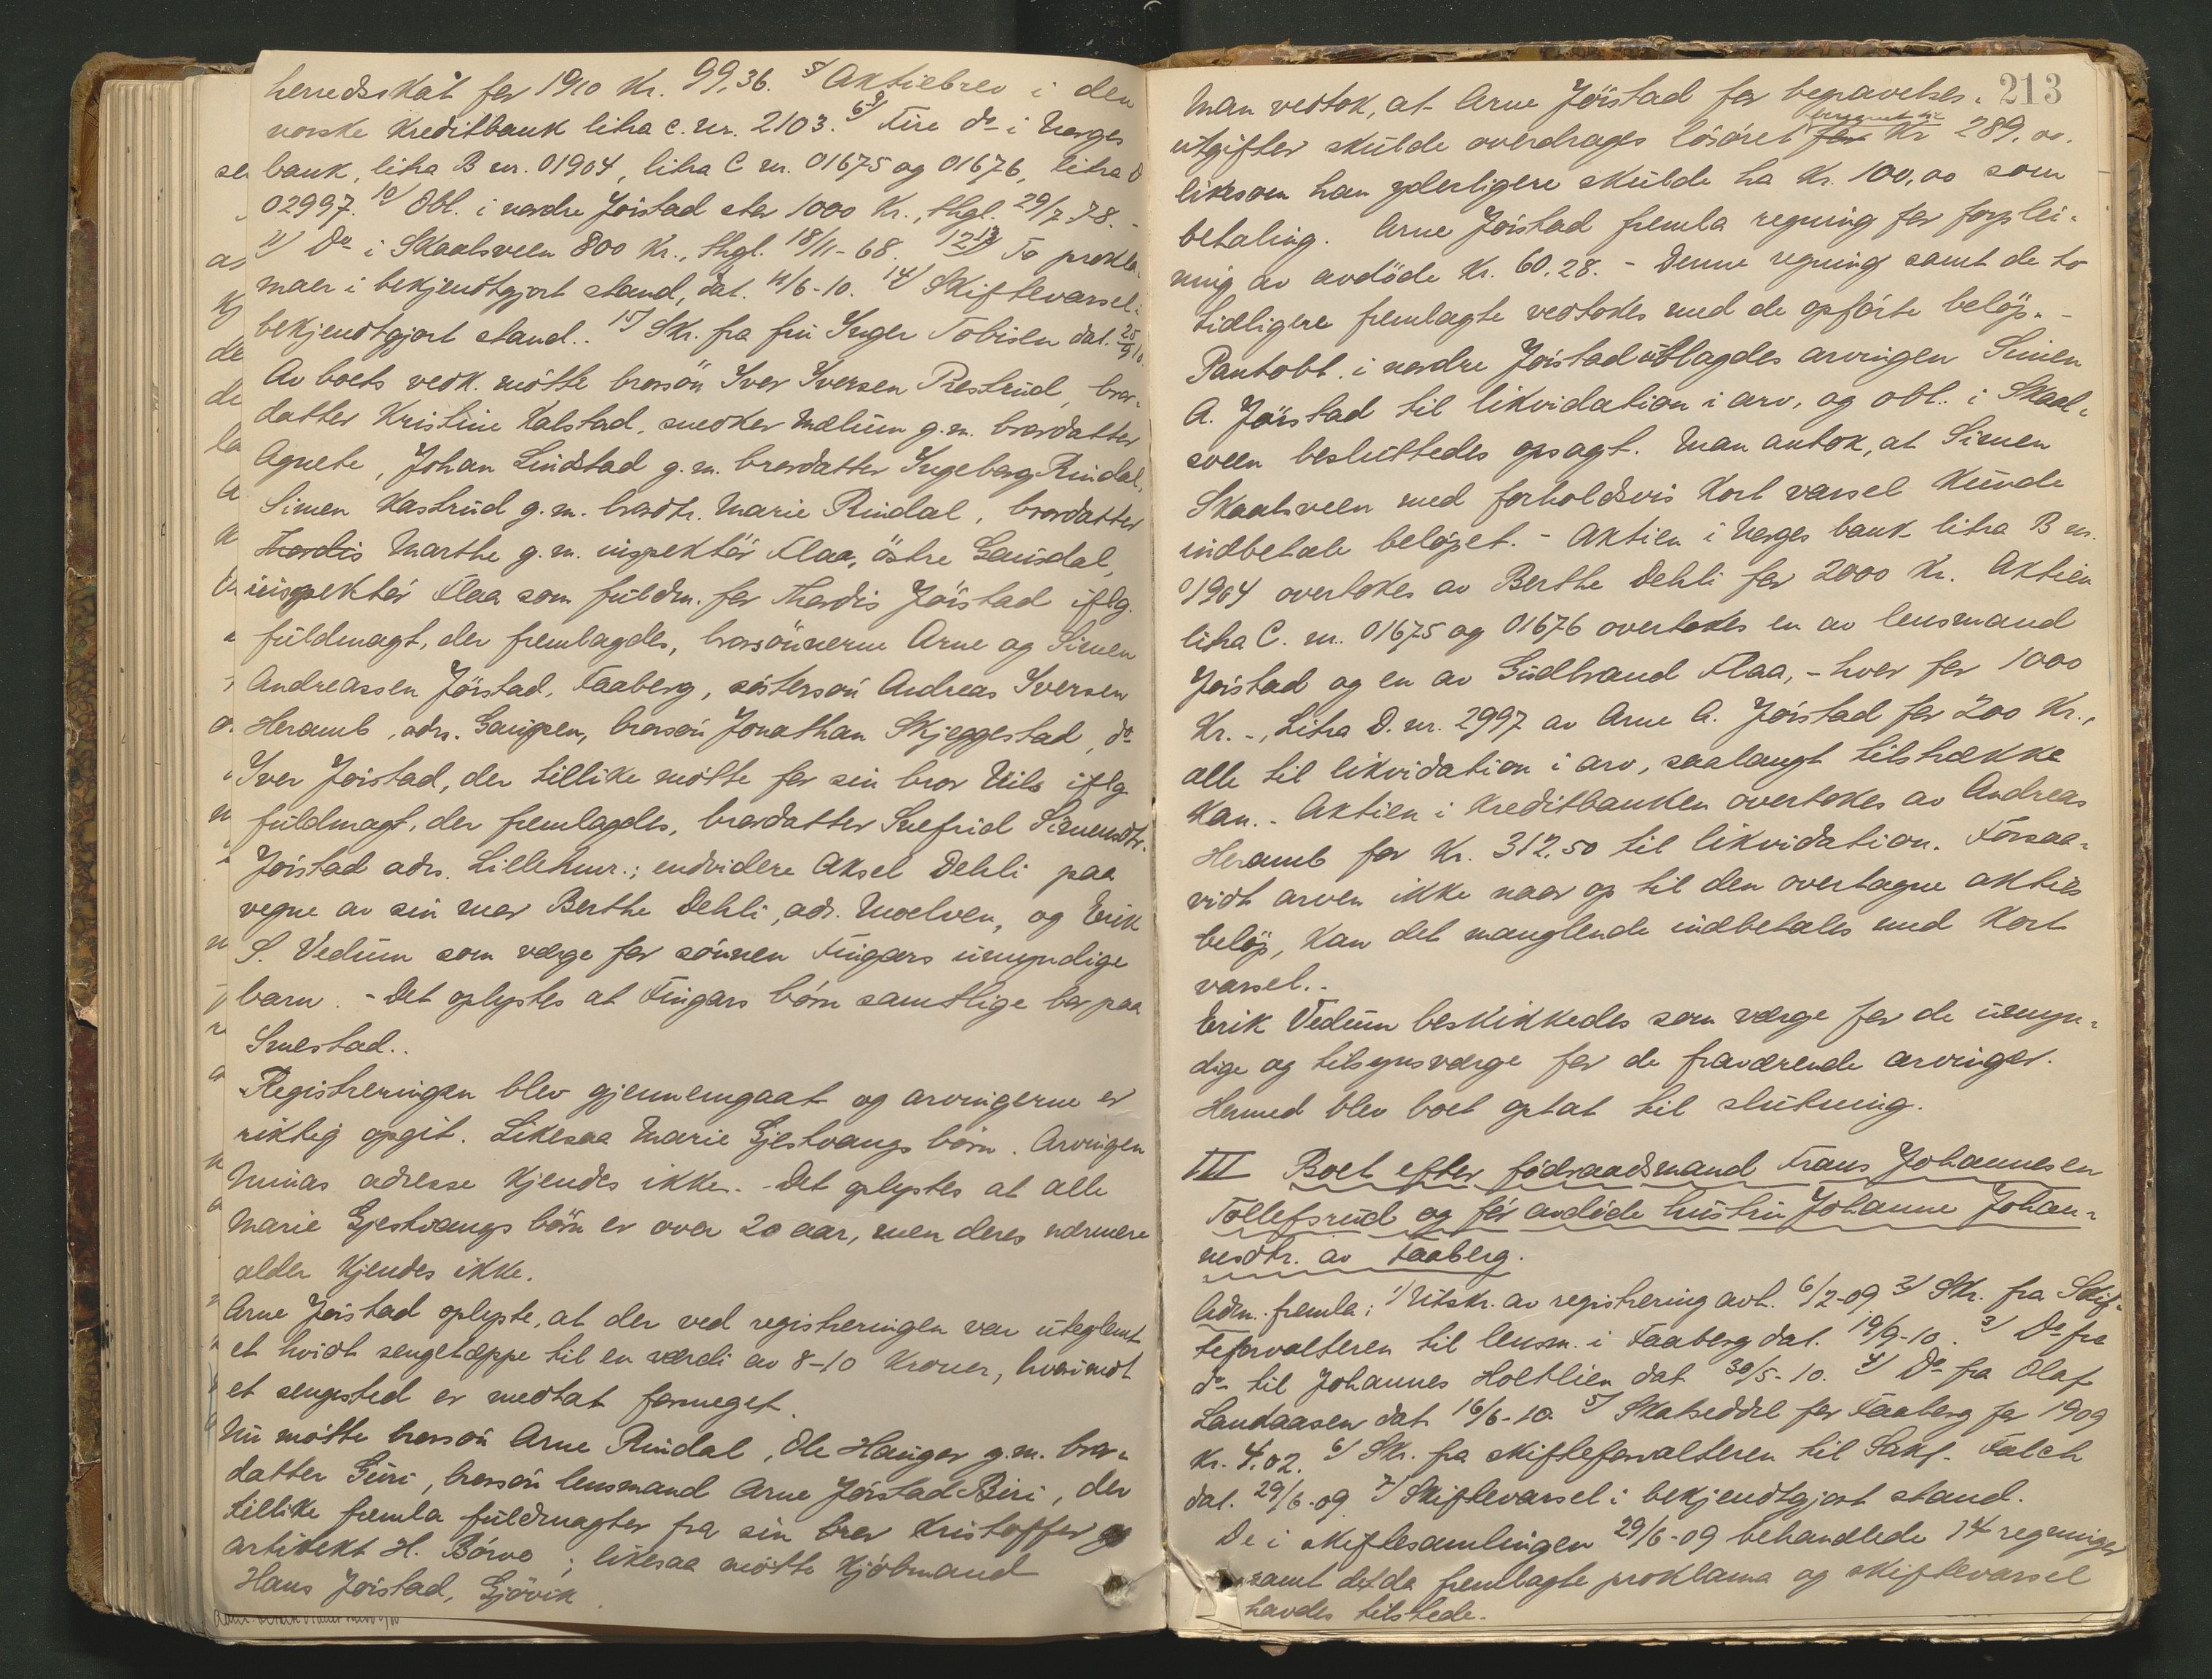 herredsskat for 1910 Kr. 99,36. 5/ Aktiebrev i den
norske Kreditbank litra C. nr. 2103. 6-9/ Fire do i Norges
bank, litra B nr. 01904, litra C nr. 01675 og 01676, litra D
02997. 10/ Obl. i nordre Jörstad stor 1000 Kr., thgl. 29/7-78. -
11/ Do i Skaalsveen 800 Kr., thgl. 18/11-68. 12-13/ To prokla-
maer i bekjendtgjort stand, dat. 11/6-10. 14/ Skiftevarsel i
bekjendtgjort stand.. 15/ Skr. fra fru Inger Tobisen dat. 25/9 10.
Av boets vedk. mötte brorsön Iver Iversen Prestrud, bror-
datter Kristine Kalstad, snedker Mælum g.m. brordatter
Agnete, Johan Lindstad g.m. brordatter Ingeborg Rindal,
Simen Kastrud g.m. brordtr. Marie Rindal, brordatter
Thordis Marthe g.m. inspektör Flaa, östre Gausdal,
inspektör Flaa som fuldm. for Thordis Jörstad iflg.
fuldmagt, der fremlagdes, brorsönnerne Arne og Simen
Andreassen Jörstad, Faaberg, söstersön Andreas Iversen
Heramb, adrs. Gaupen, brorsön Jonathan Skjeggestad, do
Iver Jörstad, der tillike mötte for sin bror Nils iflg
fuldmagt, der fremlagdes, brordatter Snefrid Simensdtr.
Jörstad adrs. Lillehmr.; endvidere Aksel Dehli paa
vegne av sin mor Berthe Dehli, adr. Moelven, og Erik
S. Vedum som værge for sönnen Fingars umyndige
barn. - Det oplystes at Fingars börn samtlige bor paa
Smestad..
Registreringen blev gjennemgaat og arvingerne er
riktig opgit. Likesaa Marie Gjestvangs börn. Arvingen
Ninas adresse kjendes ikke. - Det oplystes at alle
Marie Gjestvangs börn er over 20 aar, men deres nærmere
alder kjendes ikke.
Arne Jörstad oplyste, at der ved registreringen var uteglemt
et hvidt sengetæppe til en værdi av 8-10 Kroner, hvorimot
et sengested er medtat formeget.
Nu mötte brorsön Arne Rindal, Ole Hauger g.m. bror-
datter Guri, brorsön lensmand Arne Jörstad Biri, der
tillike fremla fuldmagter fra sin bror Kristoffer og
arkitekt H. Börve; likesaa mötte Kjöbmand
Hans Jörstad, Gjövik.
213
Man vedtok, at Arne Jörstad for begravelses-
utgifter skulde overdrages lösöret for Kr 289,00.
likesom han yderligere skulde ha Kr. 100,00 som
betaling. Arne Jörstad fremla regning for forplei-
ning av avdöde Kr. 60.28. - Denne regning samt de to
tidligere fremlagte vedtokes med de opförte belöp. -
Pantobl. i nordre Jörstad utlagdes arvingen Simen
A. Jörstad til likvidation i arv, og obl. i Skaal-
sveen besluttedes opsagt. Man antok, at Simen
Skaalsveen med forholdsvis kort varsel kunde
indbetale belöpet. - Aktien i Norges bank litra B nr.
01904 overtokes av Berthe Dehli for 2000 Kr. Aktien
litra C. nr. 01675 og 01676 overtokes en av lensmand
Jörstad og en av Gudbrand Flaa, - hver for 1000
Kr. -, Litra D. nr. 2997 av Arne A. Jörstad for 200 Kr.,
alle til likvidation i arv, saalangt tilstrække
kan. - Aktien i Kreditbanken overtokes av Andreas
Heramb for Kr. 312.50 til likvidation. Forsaa-
vidt arven ikke naar op til den overtagne akties
belöp, kan det manglende indbetales med kort
varsel. -
Erik Vedum beskikkedes som værge for de umyn-
dige og tilsynsværge for de fraværende arvinger.
Hermed blev boet optat til slutning.
III Boet efter födraadsmand Frans Johannesen
Tollefsrud og för avdöde hustru Johanne Johan-
nesdtr. av Faaberg.
Adm. fremla: 1/ Utskr. av registrering avh. 6/2-09 2/ Skr. fra Skif-
teforvalteren til lensm. i Faaberg dat. 19/9-10. 3/ Do fra
do til Johannes Holtlien dat 30/5-10. 4/ Do fra Olaf
Landaasen dat 16/6-10. 5/ Skatseddel for Faaberg for 1909
Kr. 4.02. 6/ Skr. fra skifteforvalteren til Sakf. Falch
dat. 29/6-09 7/ Skiftevarsel i bekjendtgjort stand.
De i skiftesamlingen 29/6-09 behandlede 14 regninger
samt det da fremlagte proklama og skiftevarsel
havdes tilstede.